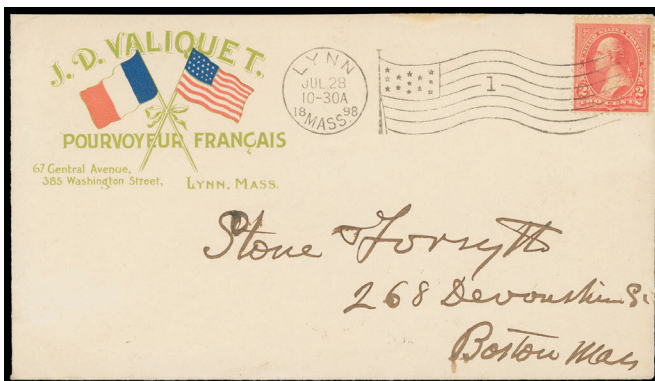 J. D. VALIQUET,
POURVOYEUR FRANÇAIS
67 Central Avenue,
385 Washington Street, LYNN, MASS.
LYNN
JUL 28
10-30A
18 98
MASS.
1
2 2
TWO CENTS
Stone & Forsyth
268 Devonshire St
Boston Mass